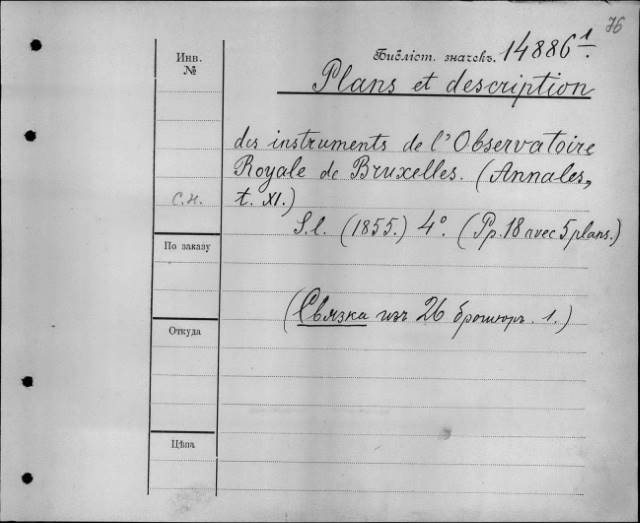 76
Инв.
№
Библіот. значекъ. 14886 1/.
Plans et description
des instruments de l'Observatoire
Royale de Bruxelles. (Annales,
с.н. t. XI.)
S.l. (1855.) 4º. (Pp. 18 avec 5 plans.)
По заказу
(Связка изъ 26 брошюръ. 1.)
Откуда
Цѣна